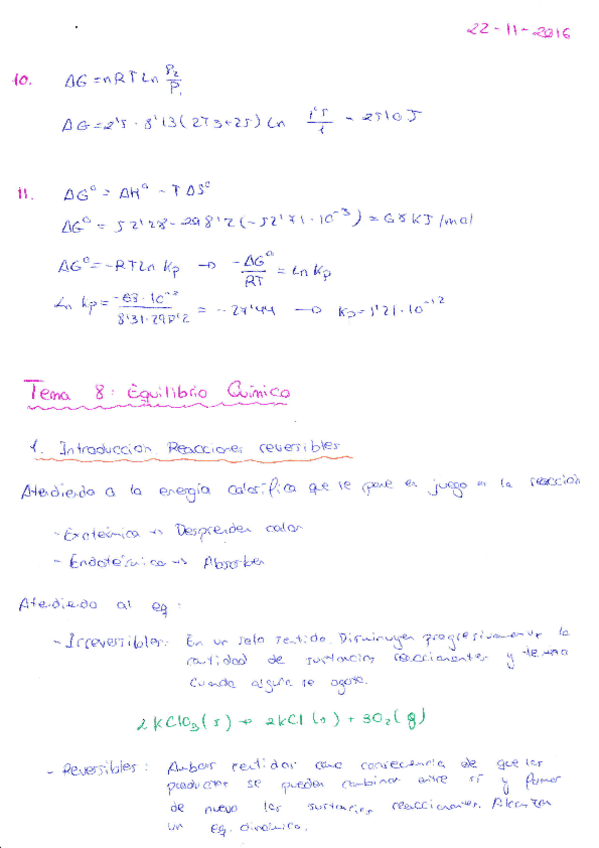 22-11-2016
10. ΔG = nRT Ln P2/P1
ΔG = 2'5 · 8'13 (273+25) Ln 1'5/1 = 2510 J
11. ΔGº = ΔHº - TΔSº
ΔGº = 52'28 - 298'2 (-52'71·10^-3) = 68 KJ/mol
ΔGº = -RT Ln Kp → -ΔGº/RT = Ln Kp
Ln Kp = / 8'31·298'2 = -27'44 → Kp = 1'21·10^-12
Tema 8: Equilibrio Químico
1. Introducción. Reacciones reversibles
Atendiendo a la energía calorífica que se pone en juego en la reacción
- Exotérmica → Desprenden calor
- Endotérmica → Absorben
Atendiendo al eq:
- Irreversibles: En un solo sentido. Disminuyen progresivamente la
cantidad de sustancias reaccionantes y termina
cuando alguna se agota.
2KClO3(s) → 2KCl(s) + 3O2(g)
- Reversibles: Ambos sentidos como consecuencia de que los
productos se pueden combinar entre sí y formar
de nuevo las sustancias reaccionantes. Alcanzan
un eq. dinámico.